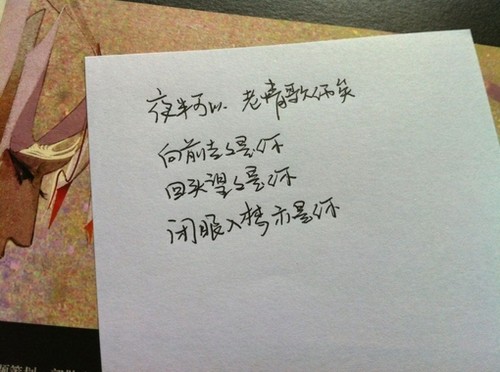 夜半可以 老情歌
向前 是你
回头望 是你
闭眼入梦亦是你